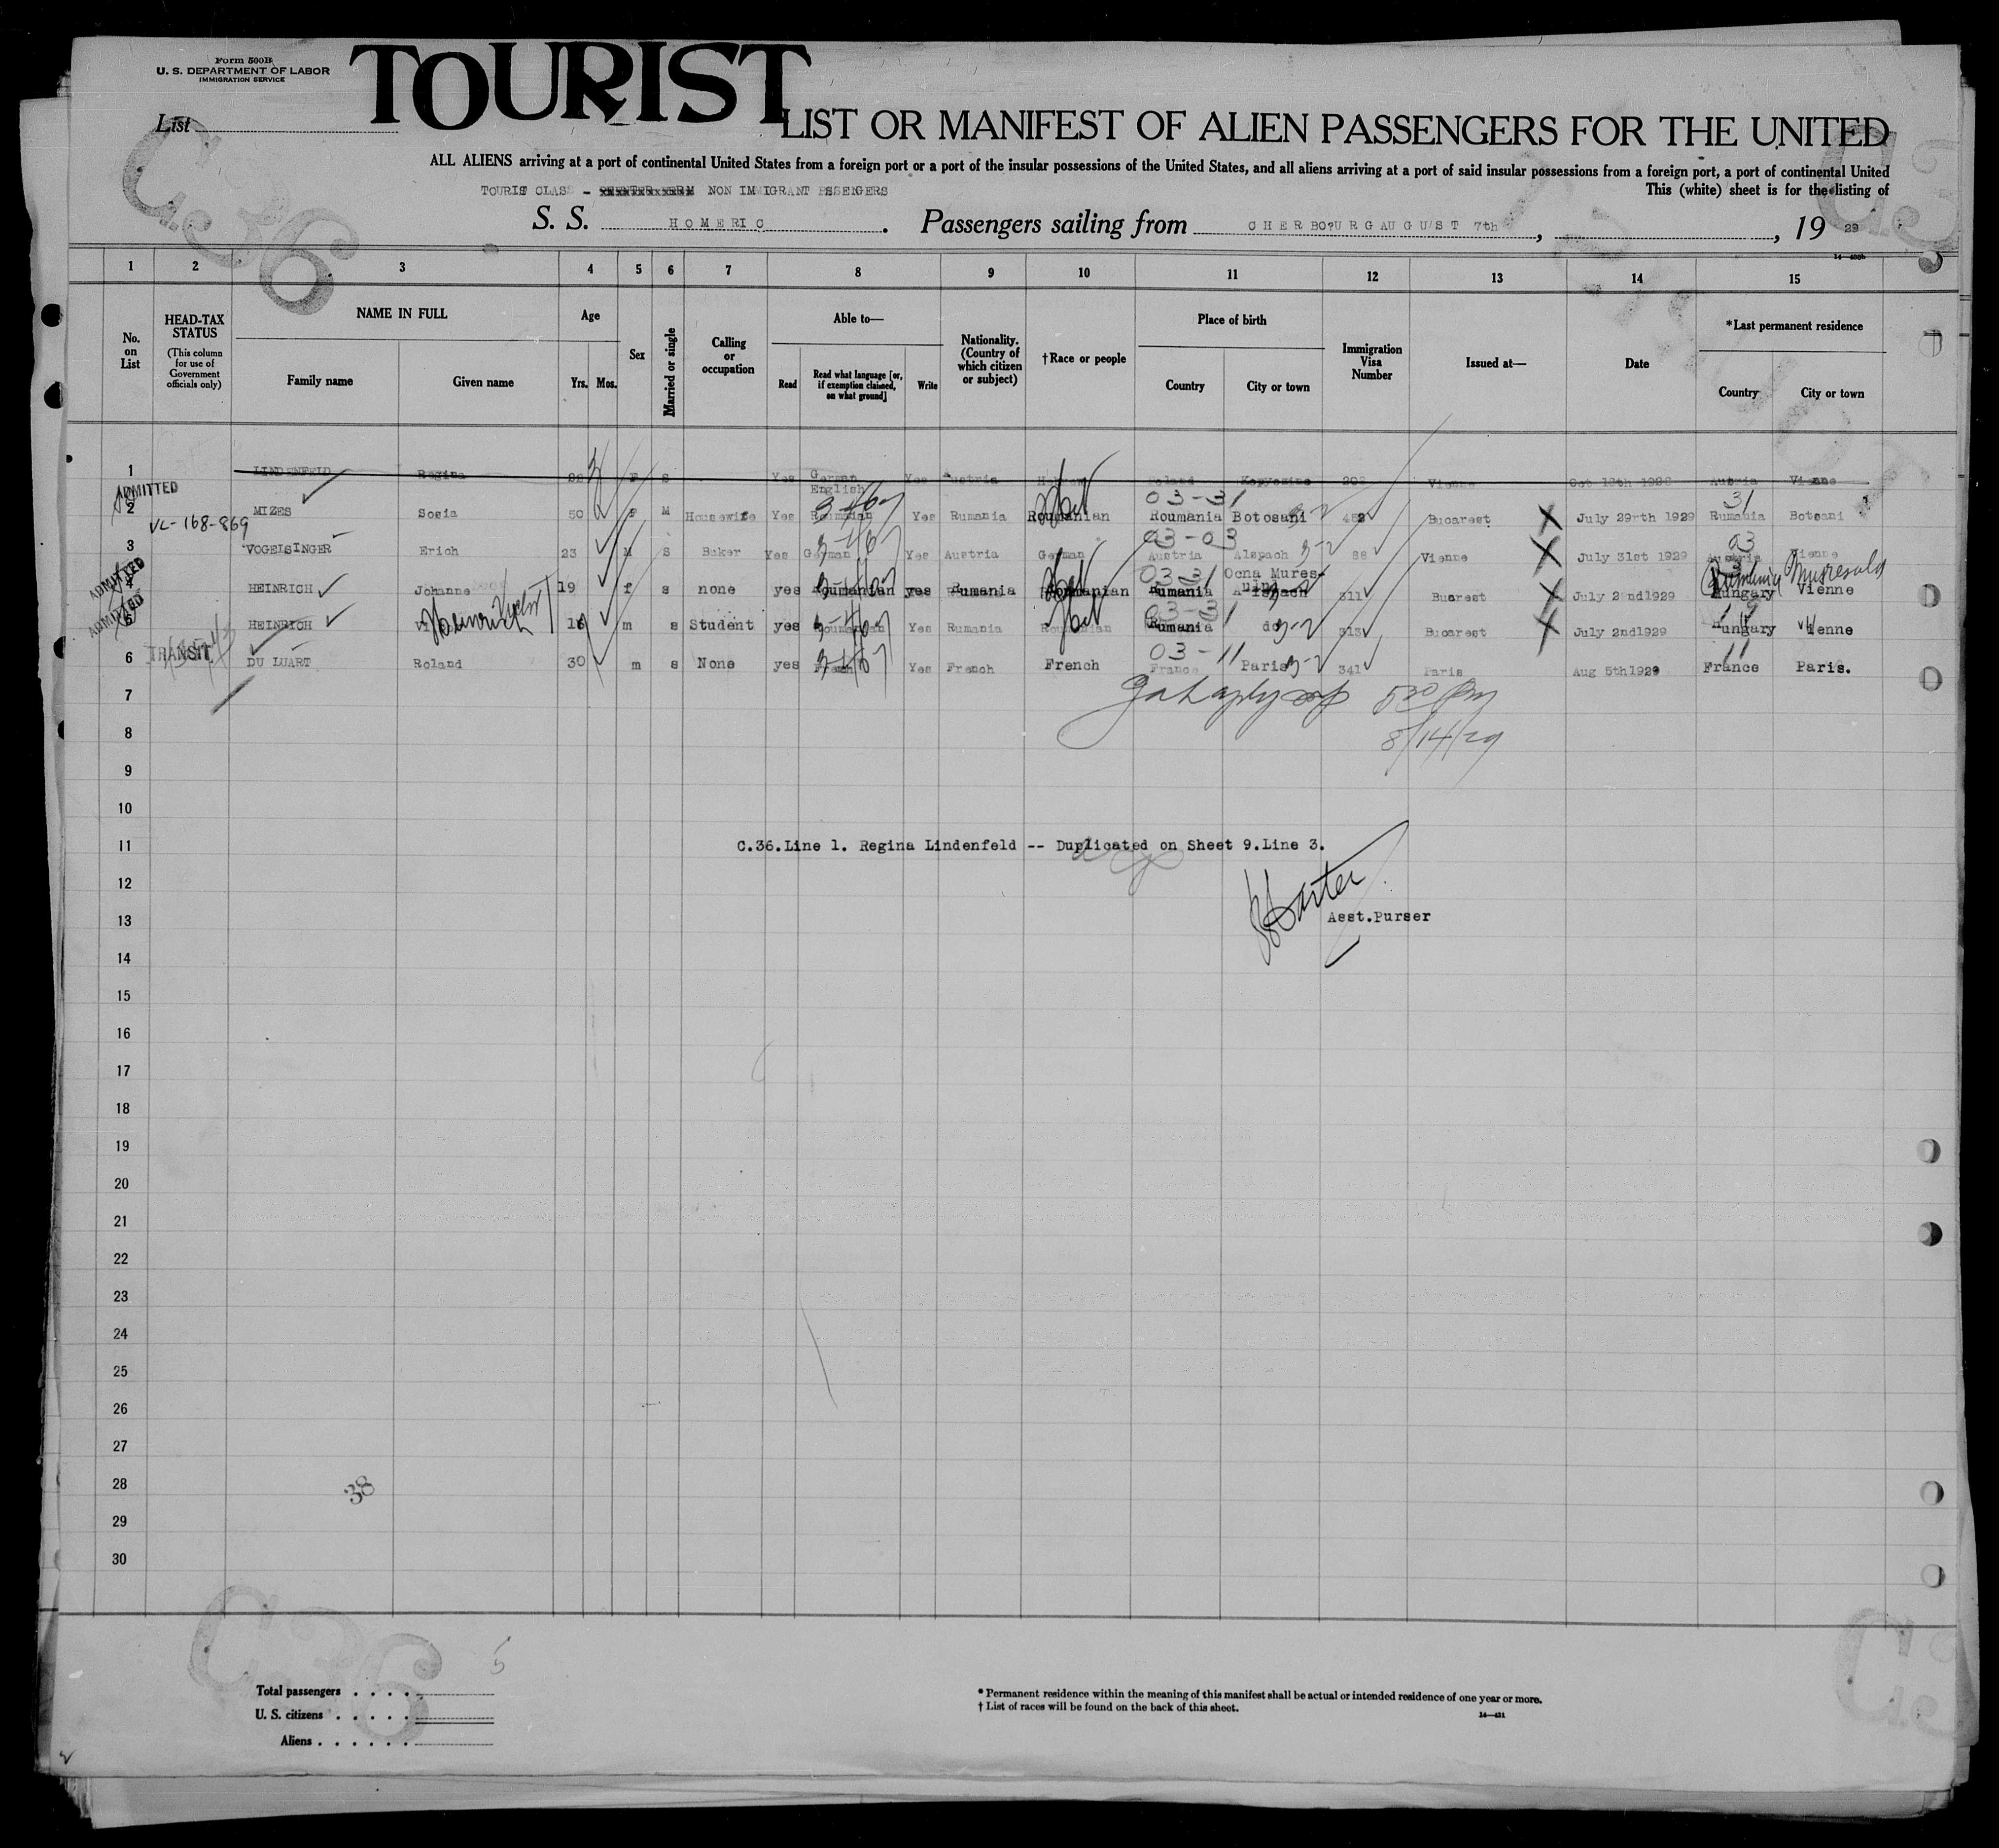 Form 500B
U. S. DEPARTMENT OF LABOR
IMMIGRATION SERVICE
TOURIST
List
LIST OR MANIFEST OF ALIEN PASSENGERS FOR THE UNITED
ALL ALIENS arriving at a port of continental United States from a foreign port or a port of the insular possessions of the United States, and all aliens arriving at a port of said insular possessions from a foreign port, a port of continental United
TOURIST CLASS - NON IMMIGRANT PASSENGERS
This (white) sheet is for the listing of
S. S. HOMERIC. Passengers sailing from CHERBOURG AUGUST 7th, 19 29
1 2 3 4 5 6 7 8 9 10 11 12 13 14 15
No. on List
HEAD-TAX STATUS
(This column for use of Government officials only)
NAME IN FULL
Family name Given name
Age
Yrs. Mos.
Sex
Married or single
Calling or occupation
Able to—
Read
Read what language [or, if exemption claimed, on what ground]
Write
Nationality. (Country of which citizen or subject)
†Race or people
Place of birth
Country City or town
Immigration Visa Number
Issued at—
Date
*Last permanent residence
Country City or town
1 LINDENFELD Regina F S Yes German English Yes Austria Poland 203 Vienne Vienne
ADMITTED
2 MIZES Sosia 50 M Housewife Yes Roumanian Yes Rumania Roumanian 03-31 Roumania Botosani Bucarest X July 29rth 1929 31 Rumania Botosani
VL-168-869
3 VOGELSINGER Erich 23 M S Baker Yes German Yes Austria German 03-03 Austria Alspach 88 Vienne X July 31st 1929 03 Austria Vienne
ADMITTED
4 HEINRICH Johanne 19 f s none yes Roumanian yes Rumania Roumanian 03 31 Rumania Ocna Mures- 311 Bucarest X July 2nd1929 Hungary Vienne
ADMITTED
5 HEINRICH Heinrich m s Student yes Roumanian Yes Rumania Roumanian 03-31 Rumania do 313 Bucarest X July 2nd1929 Hungary Vienne
TRANSIT
6 DU LUART Roland 30 m s None yes French Yes French French 03-11 France Paris 341 Paris Aug 5th1929 11 France Paris.
7
8 8/14/29
9
10
11 C.36.Line 1. Regina Lindenfeld -- Duplicated on Sheet 9.Line 3.
12
13 Asst.Purser
14
15
16
17
18
19
20
21
22
23
24
25
26
27
28 38
29
30
5
Total passengers
U. S. citizens
Aliens
* Permanent residence within the meaning of this manifest shall be actual or intended residence of one year or more.
† List of races will be found on the back of this sheet.
14—431